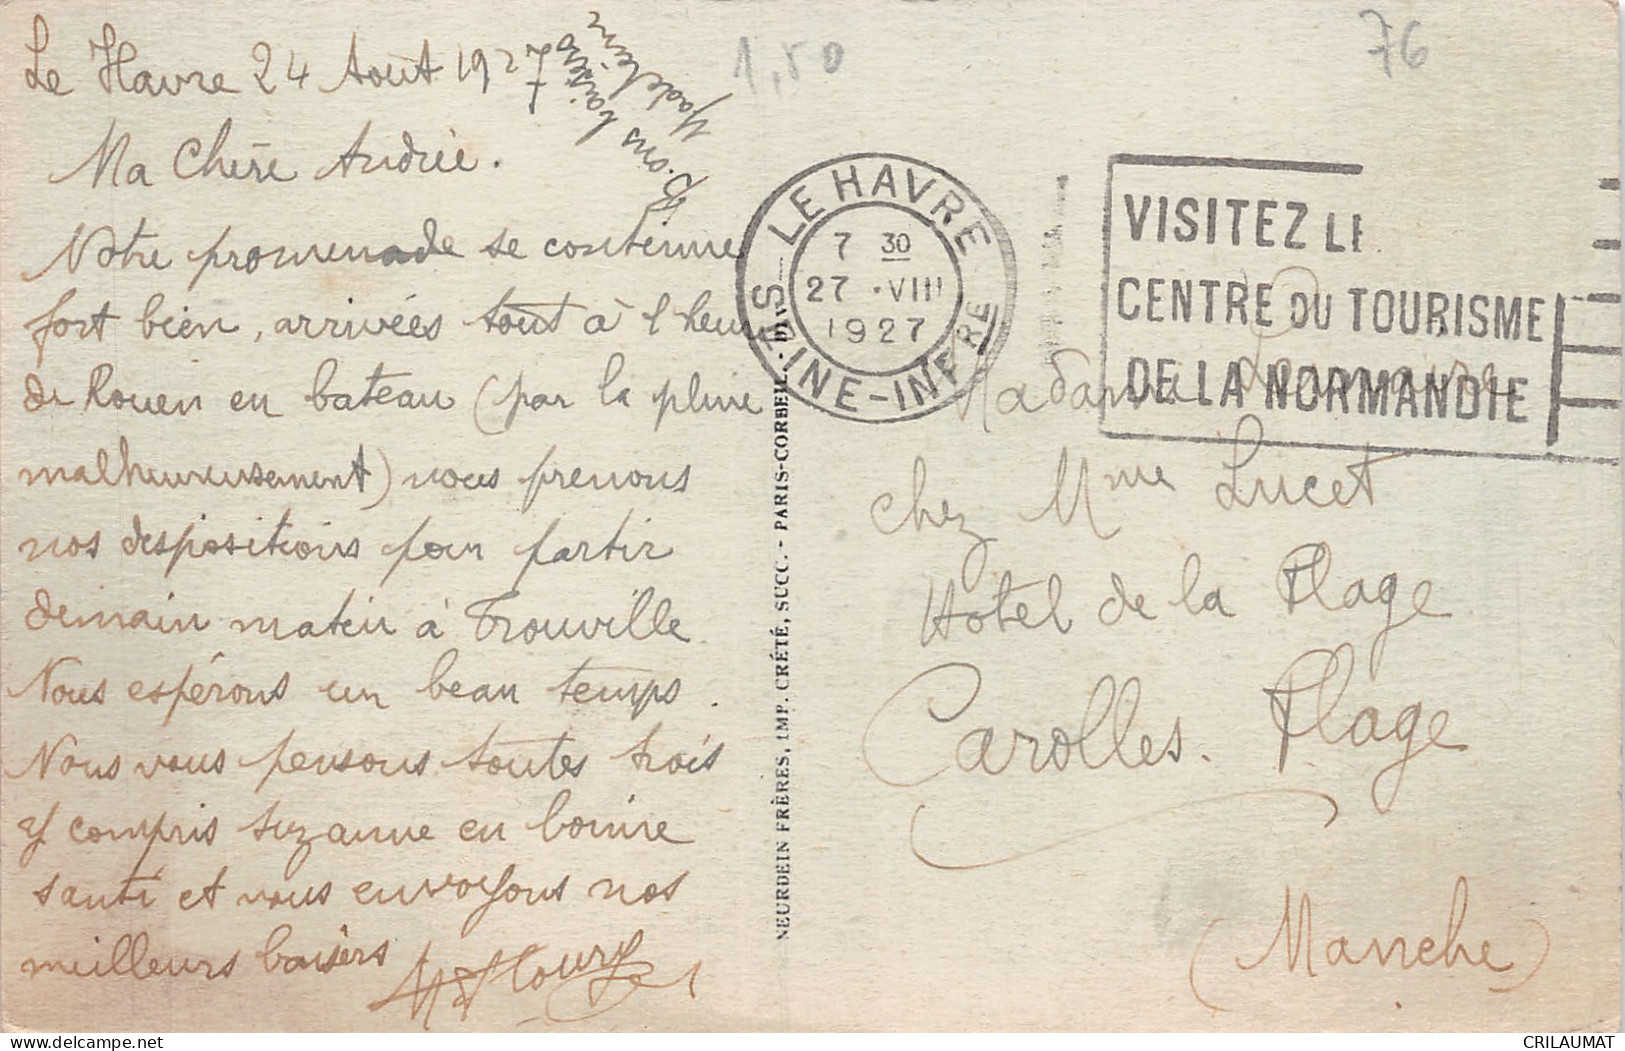 Le Havre 24 Août 1927
Bons baisers
Madeleine
1,50
76
Ma Chère Andrée.
Notre promenade se continue
fort bien, arrivées tout à l'heure
de Rouen en bateau (par la pluie
malheureusement) nous prenons
nos dispositions pour partir
demain matin à Trouville
Nous espérons un beau temps.
Nous vous pensons toutes trois
y compris Suzanne en bonne
santé et vous envoyons nos
meilleurs baisers
LE HAVRE
7 30
27 · VIII
1927
INE-INFRE
VISITEZ LE
CENTRE DU TOURISME
DE LA NORMANDIE
Madame
chez Mme Lucet
Hôtel de la Plage
Carolles. Plage
(Manche)
NEURDEIN FRÈRES, IMP. CRÉTÉ, SUCC. - PARIS-CORBEIL
CRILAUMAT